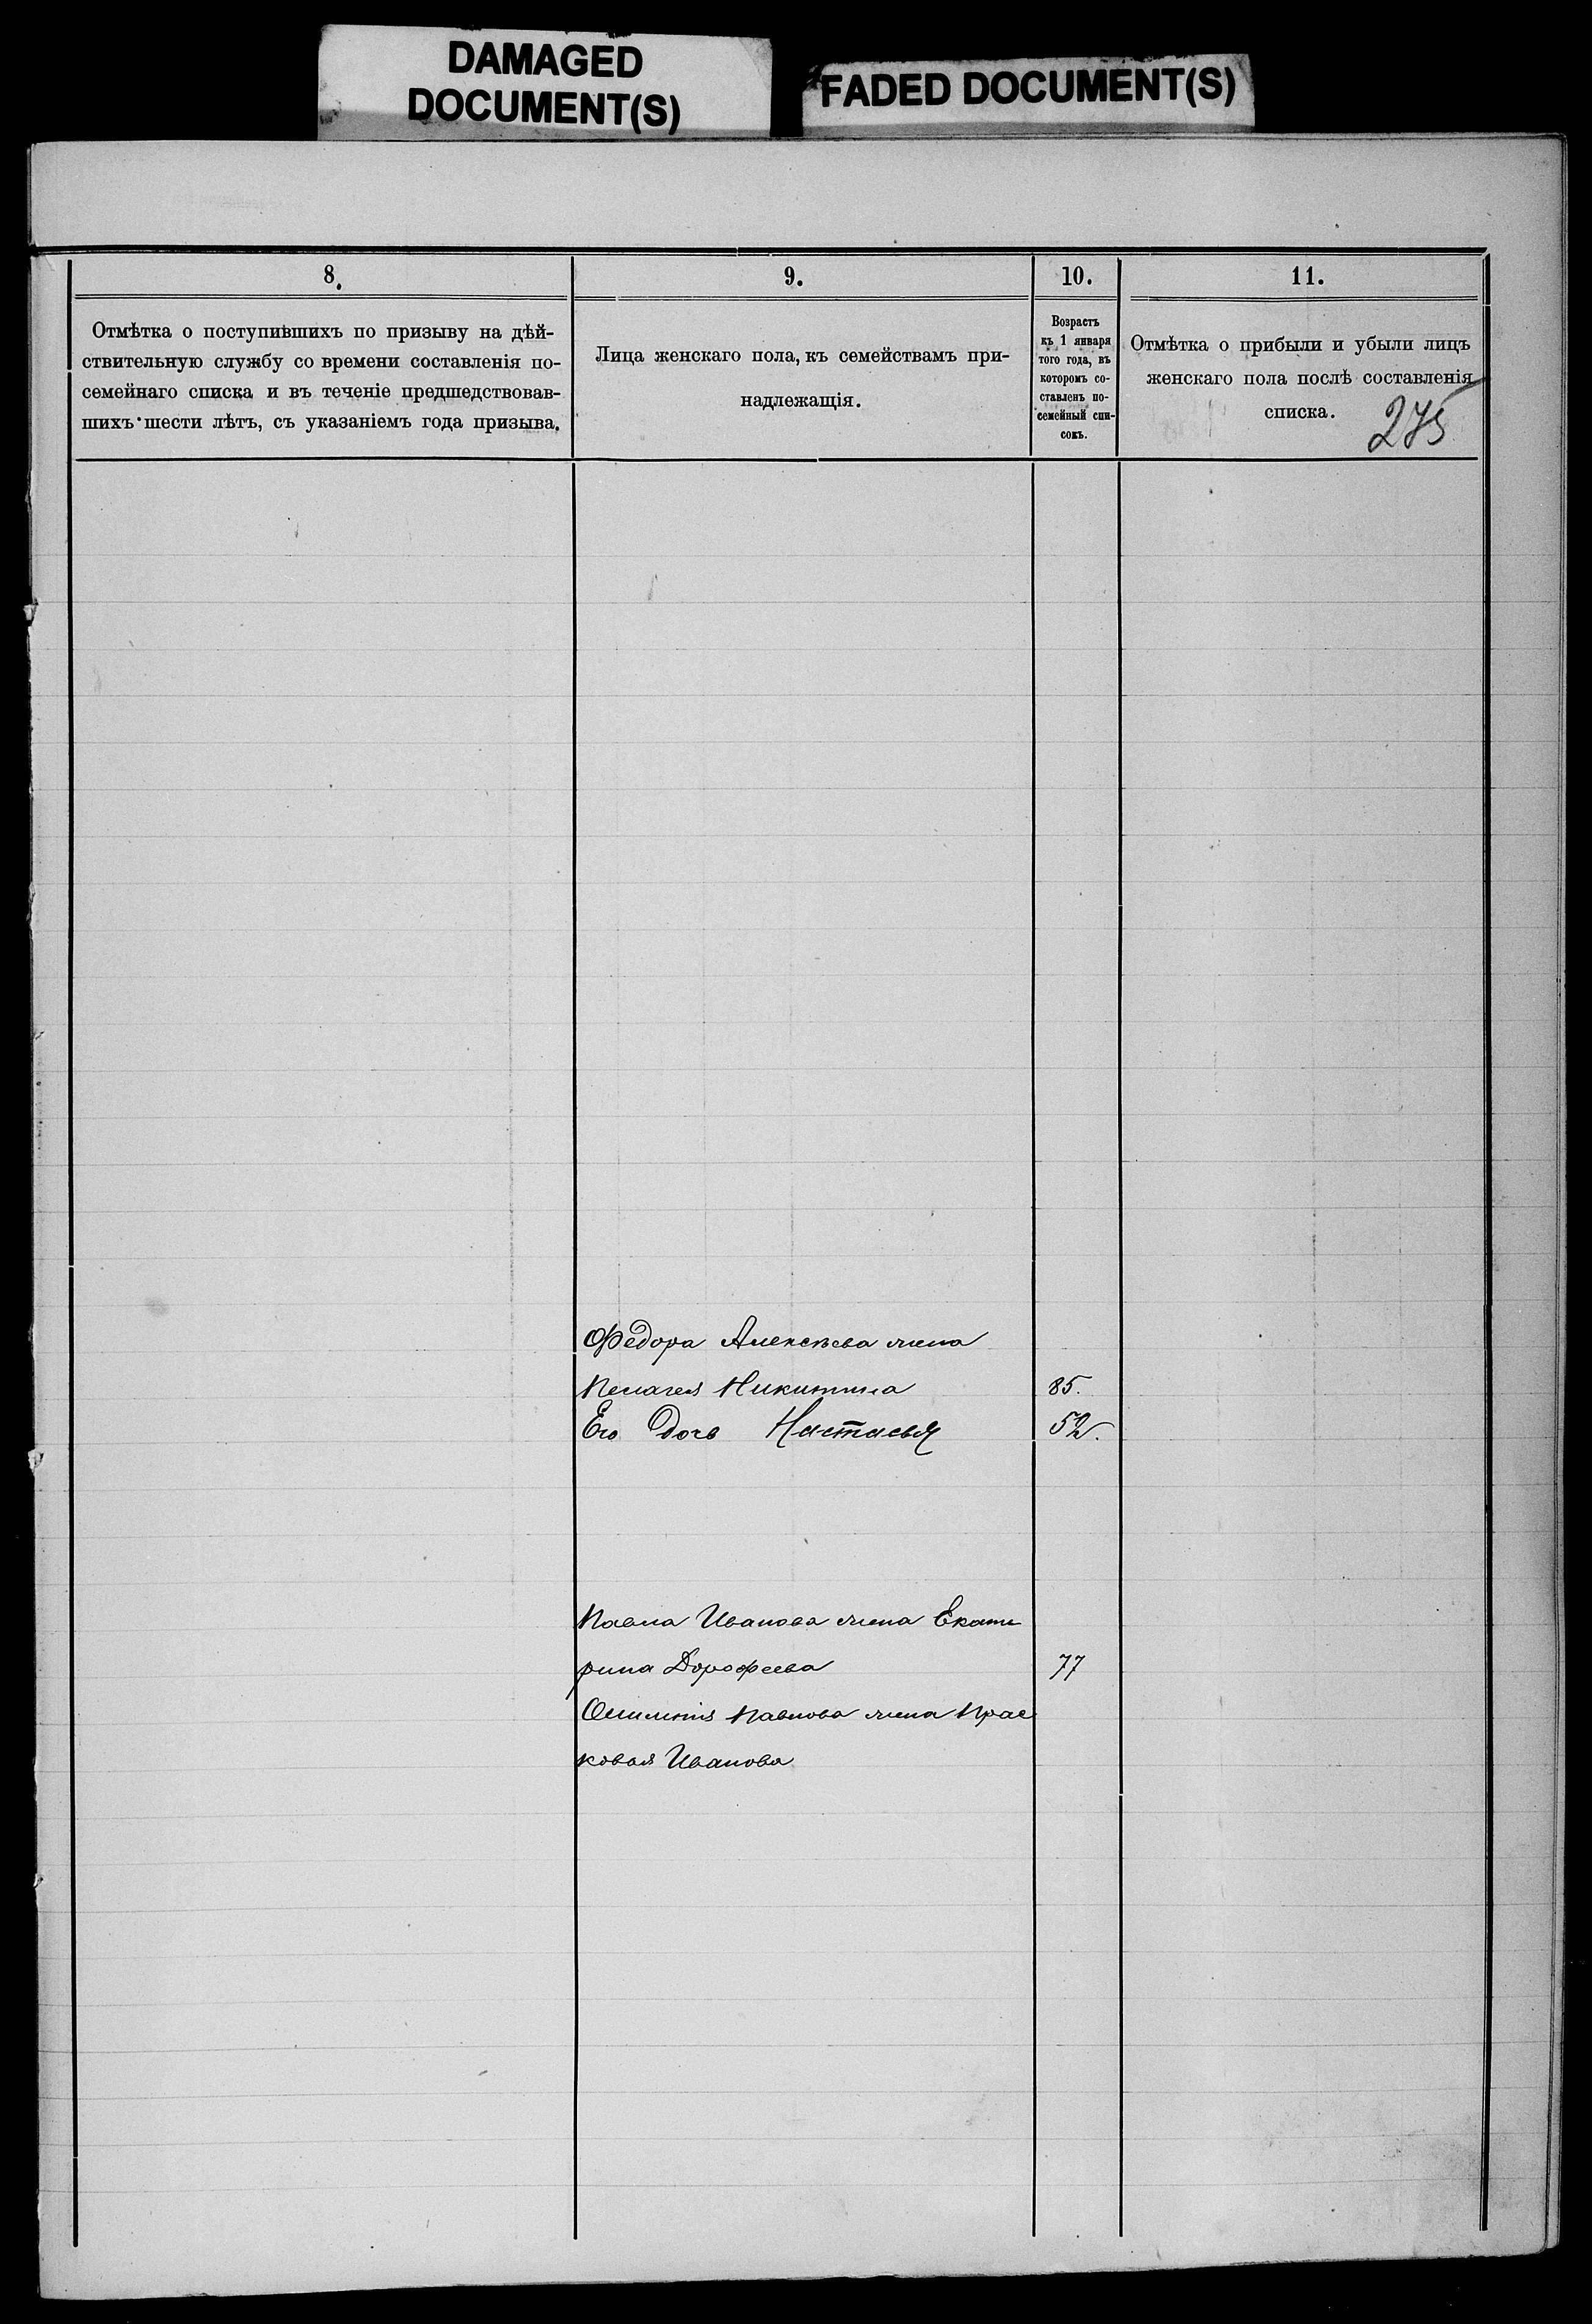 DAMAGED
DOCUMENT(S)
FADED DOCUMENT(S)
8.
Отмѣтка о поступившихъ по призыву на дѣй-
ствительную службу со времени составленія по-
семейнаго списка и въ теченіе предшедствовав-
шихъ шести лѣтъ, съ указаніемъ года призыва.
9.
Лица женскаго пола, къ семействамъ при-
надлежащія.
10.
Возрастъ
къ 1 января
того года, въ
которомъ со-
ставленъ по-
семейный спи-
сокъ.
11.
Отмѣтка о прибыли и убыли лицъ
женскаго пола послѣ составленія
списка.
275
Федора Алексѣева жена
Пелагея Никитина 85.
Его Дочь Настасья 52.
Павла Иванова жена Екате
рина Дорофеева 77
Павлова жена Прас
ковья Иванова